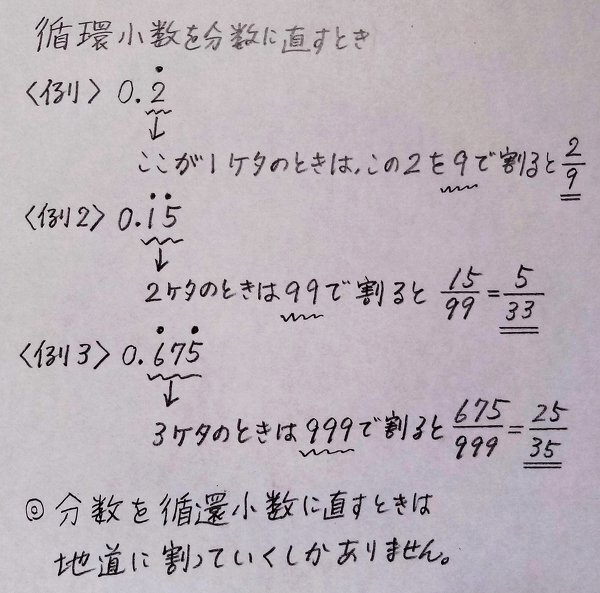 循環小数を分数に直すとき
〈例1〉 0.2̇
ここが1ケタのときは、この2を9で割ると 2/9
〈例2〉 0.1̇5̇
2ケタのときは99で割ると 15/99 = 5/33
〈例3〉 0.6̇75̇
3ケタのときは999で割ると 675/999 = 25/35
◎分数を循還小数に直すときは
地道に割っていくしかありません。